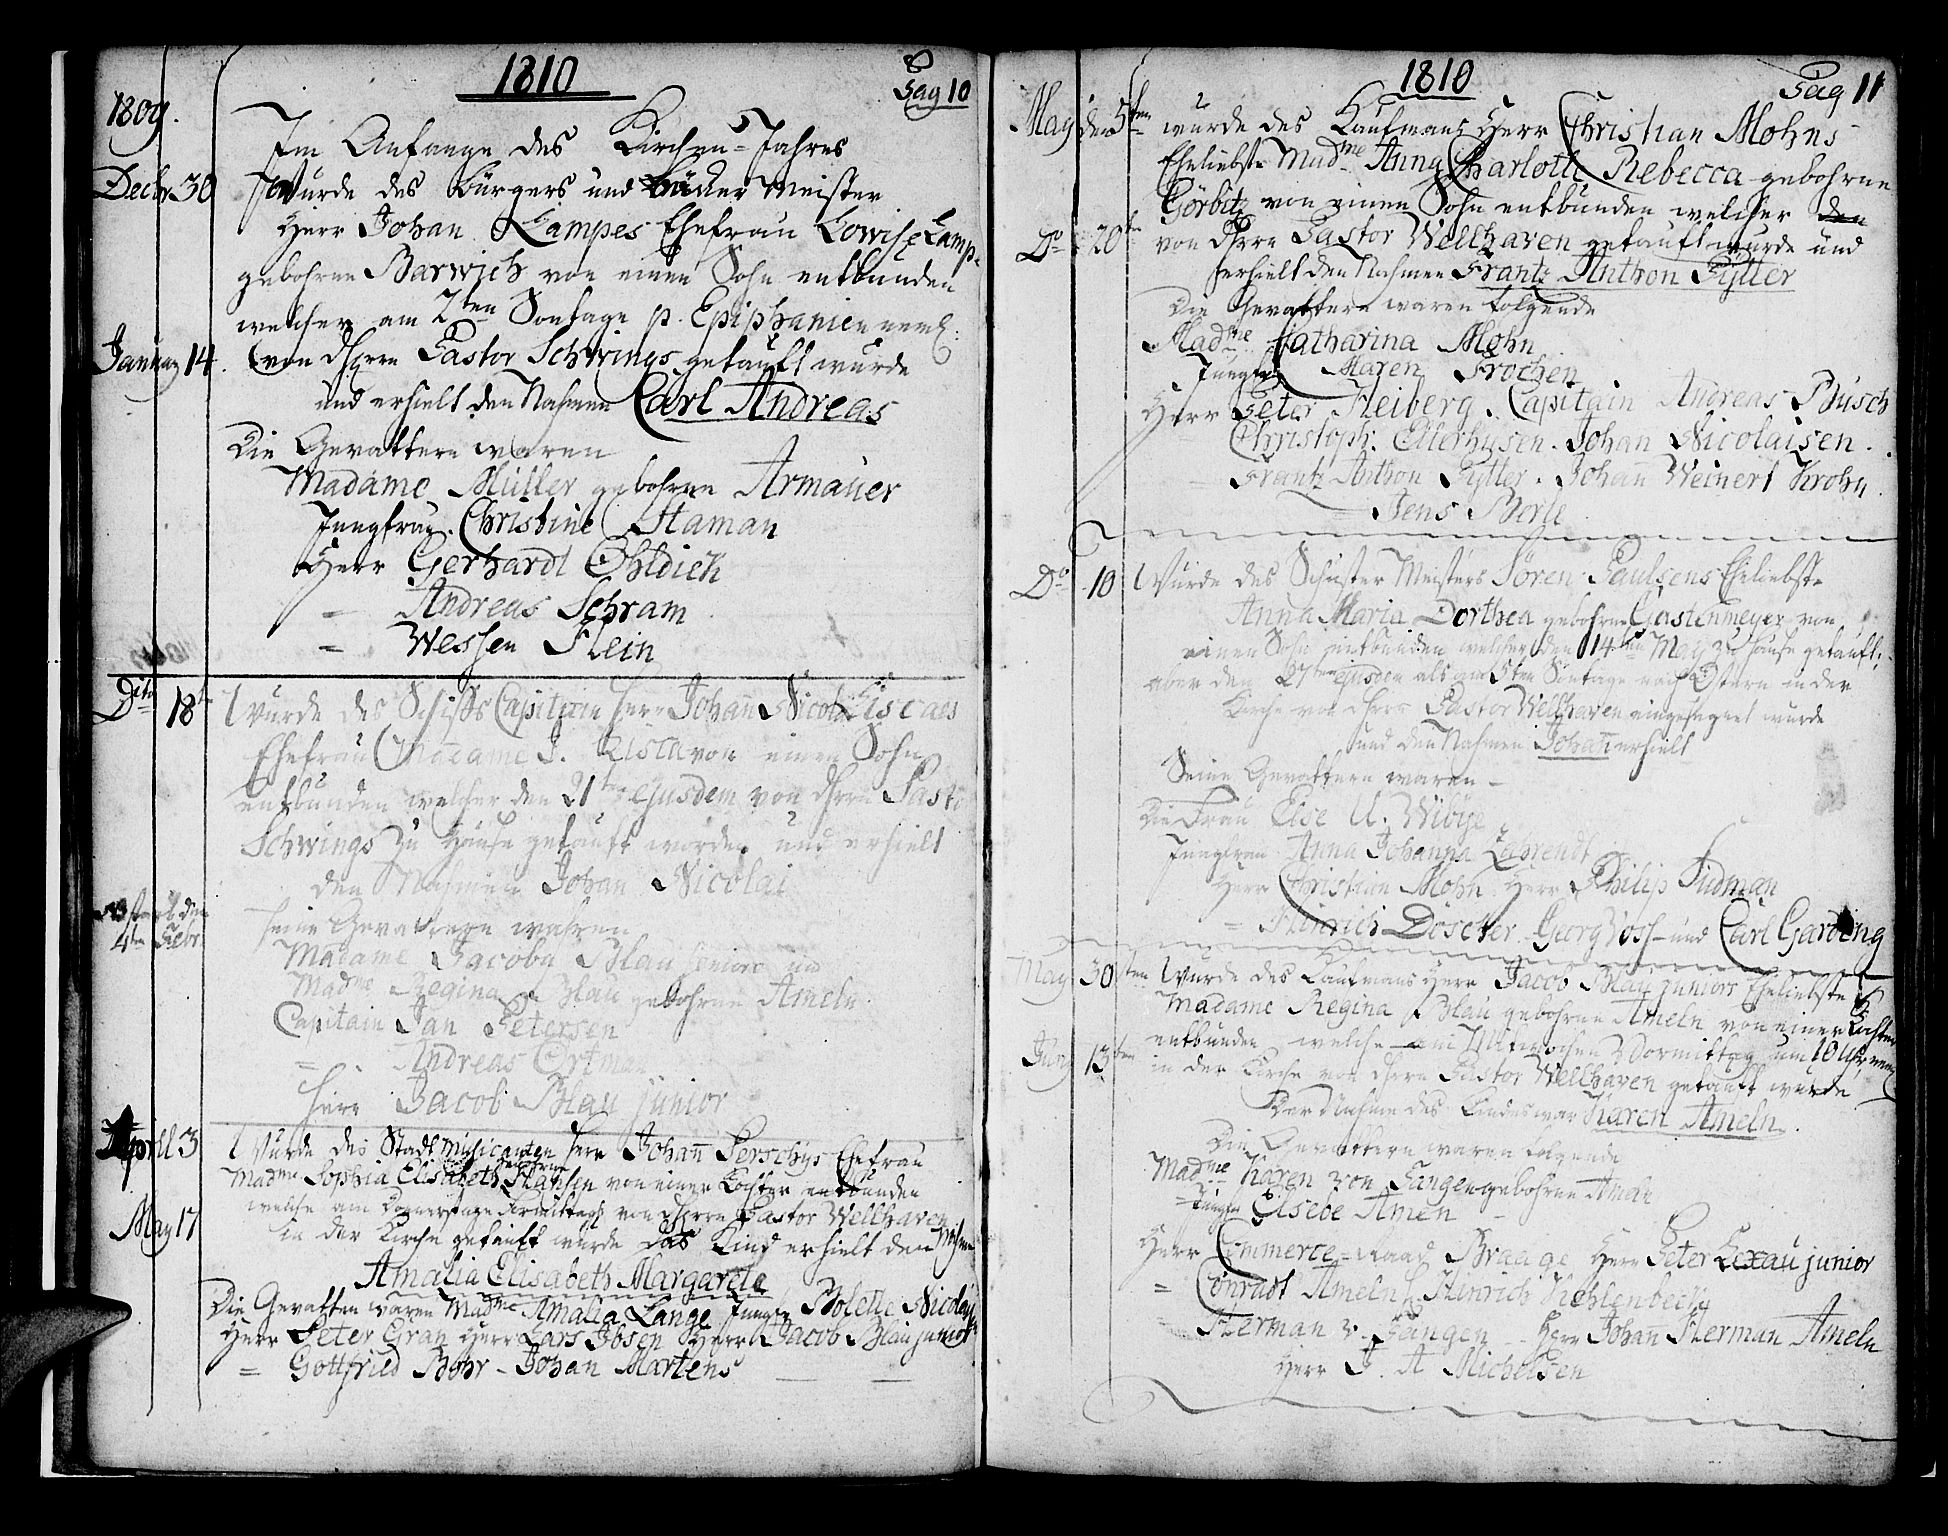 1810
Pag 10
1809.
Im Anfange des Kirchen-Jahres
Decbr 30 Wurde des Bürgers und Bäcker Meister
Herr Johan Kampes Ehefrau Lowise Kamp
gebohrne Barwich von einen Sohn entbunden
welcher am 2ten Sontage p. Epiphanien neml.
Januay 14. von Herrn Pastor Schwings getauft wurde
und erhielt den Nahmen Carl Andreas
Die Gevattern waren
Madame Müller gebohrne Armauer
Jungfrau Christine Haman
Herr Gerhardt Ohldich
= Andreas Schram
= Wessen Klein
Dito 18t Wurde des Schiffs Capitain Herr Johan Nicolai
Ehefrau Madame von einen Sohn
entbunden welcher den 21ten ejusdem von Herrn Pastor
Schwings zu Hause getauft worden und erhielt
den Nahmen Johan Nicolai
starb den
4ten Febr.
seine Gevattern wahren
Madame Jacoba Blau seniore und
Madme Regina Blau gebohrne Ameln
Capitain Jan Petersen
= Andreas Ortman
Herr Jacob Blau junior
Aprill 3 Wurde des Stadt Musicanten Herr Johan Perschys Ehefrau
Madme Sophia Elisabeth gebohrne Hansen von einer Tochter entbunden
welche am Donnerstage Vormittag von Herrn Pastor Wellhaven
May 17 in der Kirche getauft wurde das Kind erhielt den Nahmen
Amalia Elisabeth Margareta
Die Gevattern waren Madme Amalia Lange Jungfr Bolette Nicolay
Herr Peter Gran Herr Lars Ibsen Herr Jacob Blau junior
= Gottfried Bohr - Johan Martens
1810
Pag 11
May den 5ten wurde des Kaufmans Herr Christian Mohns
Eheliebste Madme Anna Charlotte Rebecca gebohrne
Görbitz von einen Sohn entbunden welcher den
Do 20ten von Herrn Pastor Wellhaven getauft wurde und
erhielt den Nahmen Frantz Anthon Fylter
Die Gevattern waren folgende
Madme Catharina Mohn
Jungfr Maren Frochen
Herr Peter Heiberg. Capitain Andreas Busch
Christoph. Ellerhusen. Johan Nicolaisen.
Frantz Anthon Fylter. Johan Weinert Krohn.
Jens Berle
Do 10 Wurde des Schuster Meisters Sören Paulsens Eheliebste
Anna Maria Dorthea gebohrne Gastenmeyer von
einen Sohn entbunden welcher den 14ten May zu Hause getauft,
aber den 27ten ejusdem als am 5ten Sontage nach Ostern in der
Kirche von Herrn Pastor Wellhaven eingesegnet wurde
und den Nahmen Johan erhielt
Seine Gevattern waren -
Die Frau Else U. Wibye
Jungfrau Anna Johanna Lahrendt
Herr Christian Mohn Herr Philip Tudman
= Hinrich Döscher Georg Voss - und Carl Garding
May 30sten Wurde des Kaufmans Herr Jacob Blau juniors Eheliebste
Madame Regina Blau gebohrne Ameln von einer Tochter
entbunden welche am Mitwochen Vormittag um 10 Uhr neml
Juny 13ten in der Kirche von Herrn Pastor Wellhaven getauft wurde
Der Nahme des Kindes war Karen Ameln.
Die Gevattern waren folgende
Madme Karen von Tangen gebohrne Ameln
Jungfr Elsebe Amen
Herr Commerce-Raad Braage Herr Peter Lexau junior
= Conradt Ameln Hinrich Kehlenbeck
= Herman v. Tangen - Herr Johan Herman Ameln
Herr J. A Michelsen